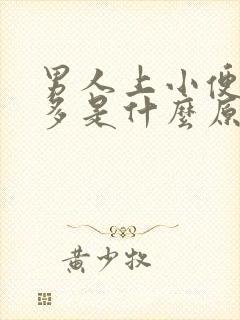 男人上小便
多是什麼原
黃少牧